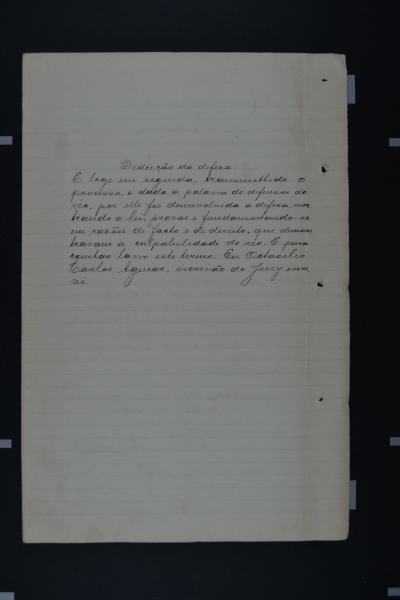 Dedução da defesa
E logo em seguida, transmittido o
processo, e dada a palavra do defensor do
réo, por elle foi desenvolvida a defesa, mos
trando a lei, provas e fundamentando-se
em razões de facto e de direito, que demons
travam a culpabilidade do réo. E para
constar lavro este termo. Eu Octacilio
Carlos Aguiar, escrivão do Jury escre
vi